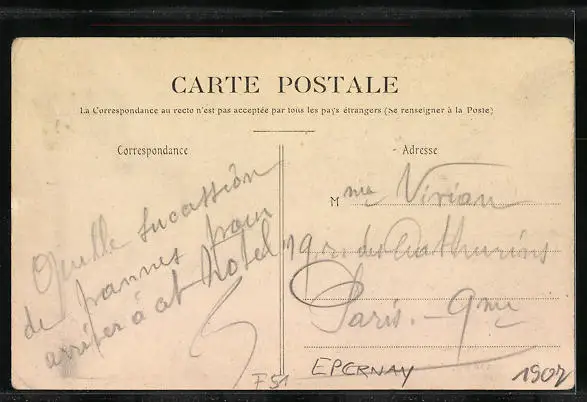 CARTE POSTALE
La Correspondance au recto n'est pas acceptée par tous les pays étrangers (Se renseigner à la Poste)
Correspondance
Quelle succession
de pannes pour
arriver à hotel
- Adresse
Mme Vivian
19 r. des Mathurins
Paris. - 9me
F51
EPERNAY
1907